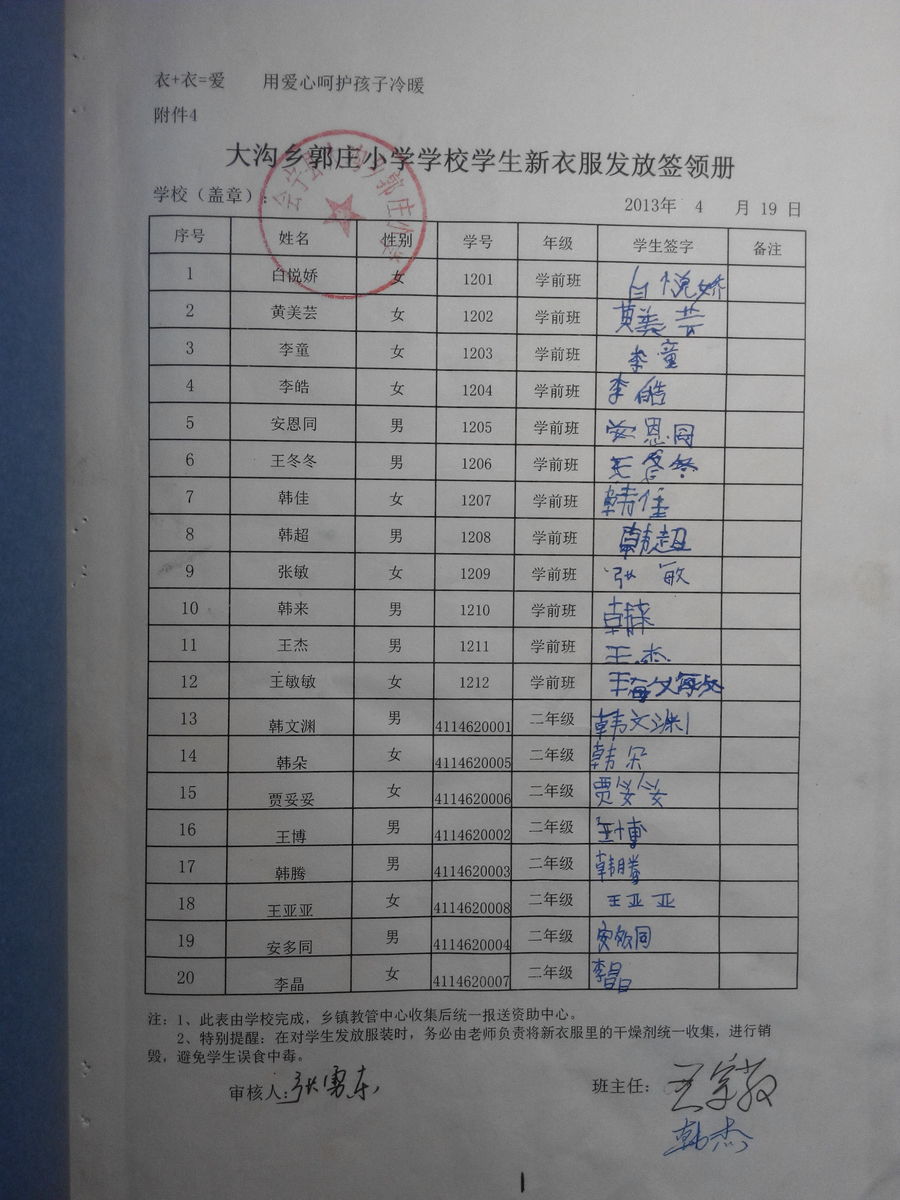 衣+衣=爱 用爱心呵护孩子冷暖
附件4
大沟乡郭庄小学学校学生新衣服发放签领册
学校（盖章）： 2013年 4 月 19 日
序号 姓名 性别 学号 年级 学生签字 备注
1 白悦娇 女 1201 学前班 白悦娇
2 黄美芸 女 1202 学前班 黄美芸
3 李童 女 1203 学前班 李童
4 李皓 女 1204 学前班 李皓
5 安恩同 男 1205 学前班 安恩同
6 王冬冬 男 1206 学前班 王冬冬
7 韩佳 女 1207 学前班 韩佳
8 韩超 男 1208 学前班 韩超
9 张敏 女 1209 学前班 张敏
10 韩来 男 1210 学前班
11 王杰 男 1211 学前班 王杰
12 王敏敏 女 1212 学前班 王敏敏
13 韩文渊 男 4114620001 二年级 韩文渊
14 韩朵 女 4114620005 二年级 韩朵
15 贾妥妥 女 4114620006 二年级 贾妥妥
16 王博 男 4114620002 二年级 王博
17 韩腾 男 4114620003 二年级 韩腾
18 王亚亚 女 4114620008 二年级 王亚亚
19 安多同 男 4114620004 二年级 安多同
20 李晶 女 4114620007 二年级 李晶
注：1、此表由学校完成，乡镇教管中心收集后统一报送资助中心。
2、特别提醒：在对学生发放服装时，务必由老师负责将新衣服里的干燥剂统一收集，进行销
毁，避免学生误食中毒。
审核人：张勇东 班主任：
韩杰
1